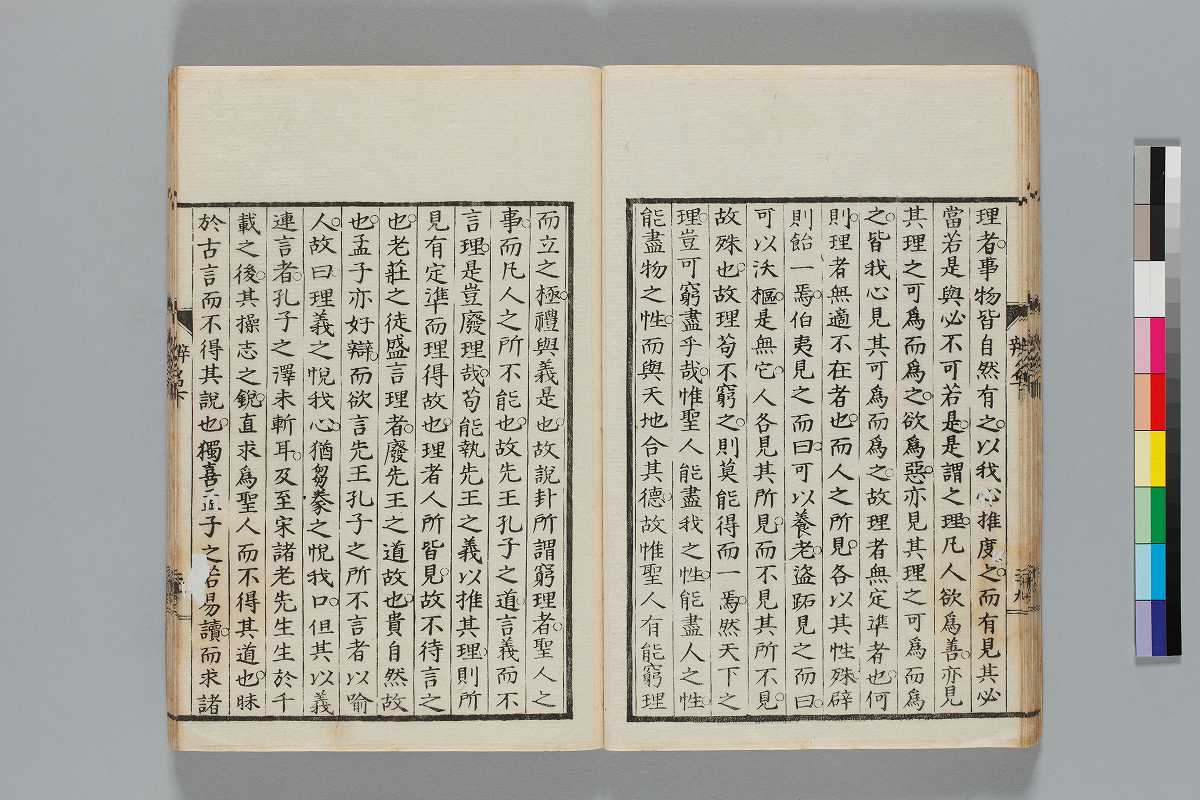 理者事物皆自然有之以我心推度之而有見其必
當若是與必不可若是是謂之理凡人欲爲善亦見
其理之可爲而爲之欲爲惡亦見其理之可爲而爲
之皆我心見其可爲而爲之故理者無定準者也何
則理者無適不在者也而人之所見各以其性殊辟
則飴一焉伯夷見之而曰可以養老盜跖見之而曰
可以沃樞是無它人各見其所見而不見其所不見
故殊也故理苟不窮之則莫能得而一焉然天下之
理豈可窮盡乎哉惟聖人能盡我之性能盡人之性
能盡物之性而與天地合其德故惟聖人有能窮理
而立之極禮與義是也故說卦所謂窮理者聖人之
事而凡人之所不能也故先王孔子之道言義而不
言理是豈廢理哉苟能執先王之義以推其理則所
見有定準而理得故也理者人所皆見故不待言之
也老莊之徒盛言理者廢先王之道故也貴自然故
也孟子亦好辯而欲言先王孔子之所不言者以喻
人故曰理義之悅我心猶芻豢之悅我口但其以義
連言者孔子之澤未斬耳及至宋諸老先生生於千
載之後其操志之銳直求爲聖人而不得其道也昧
於古言而不得其說也獨喜孟子之若易讀而求諸